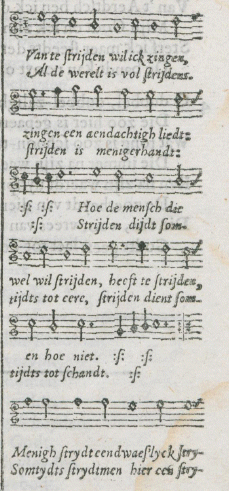 Van te strijden wil ick zingen,
Al de werelt is vol strijdens.
zingen een aendachtigh liedt:
strijden is menigerhandt:
:ʃ: :ʃ: Hoe de mensch die
:ʃ: Strijden dijdt som-
wel wil strijden, heeft te strijden,
tijdts tot eere, strijden dient som-
en hoe niet. :ʃ: :ʃ:
tijdts tot schandt. :ʃ:
Menigh strydt eendwaeslyck stry-
Somtydts strydtmen hier een stry-